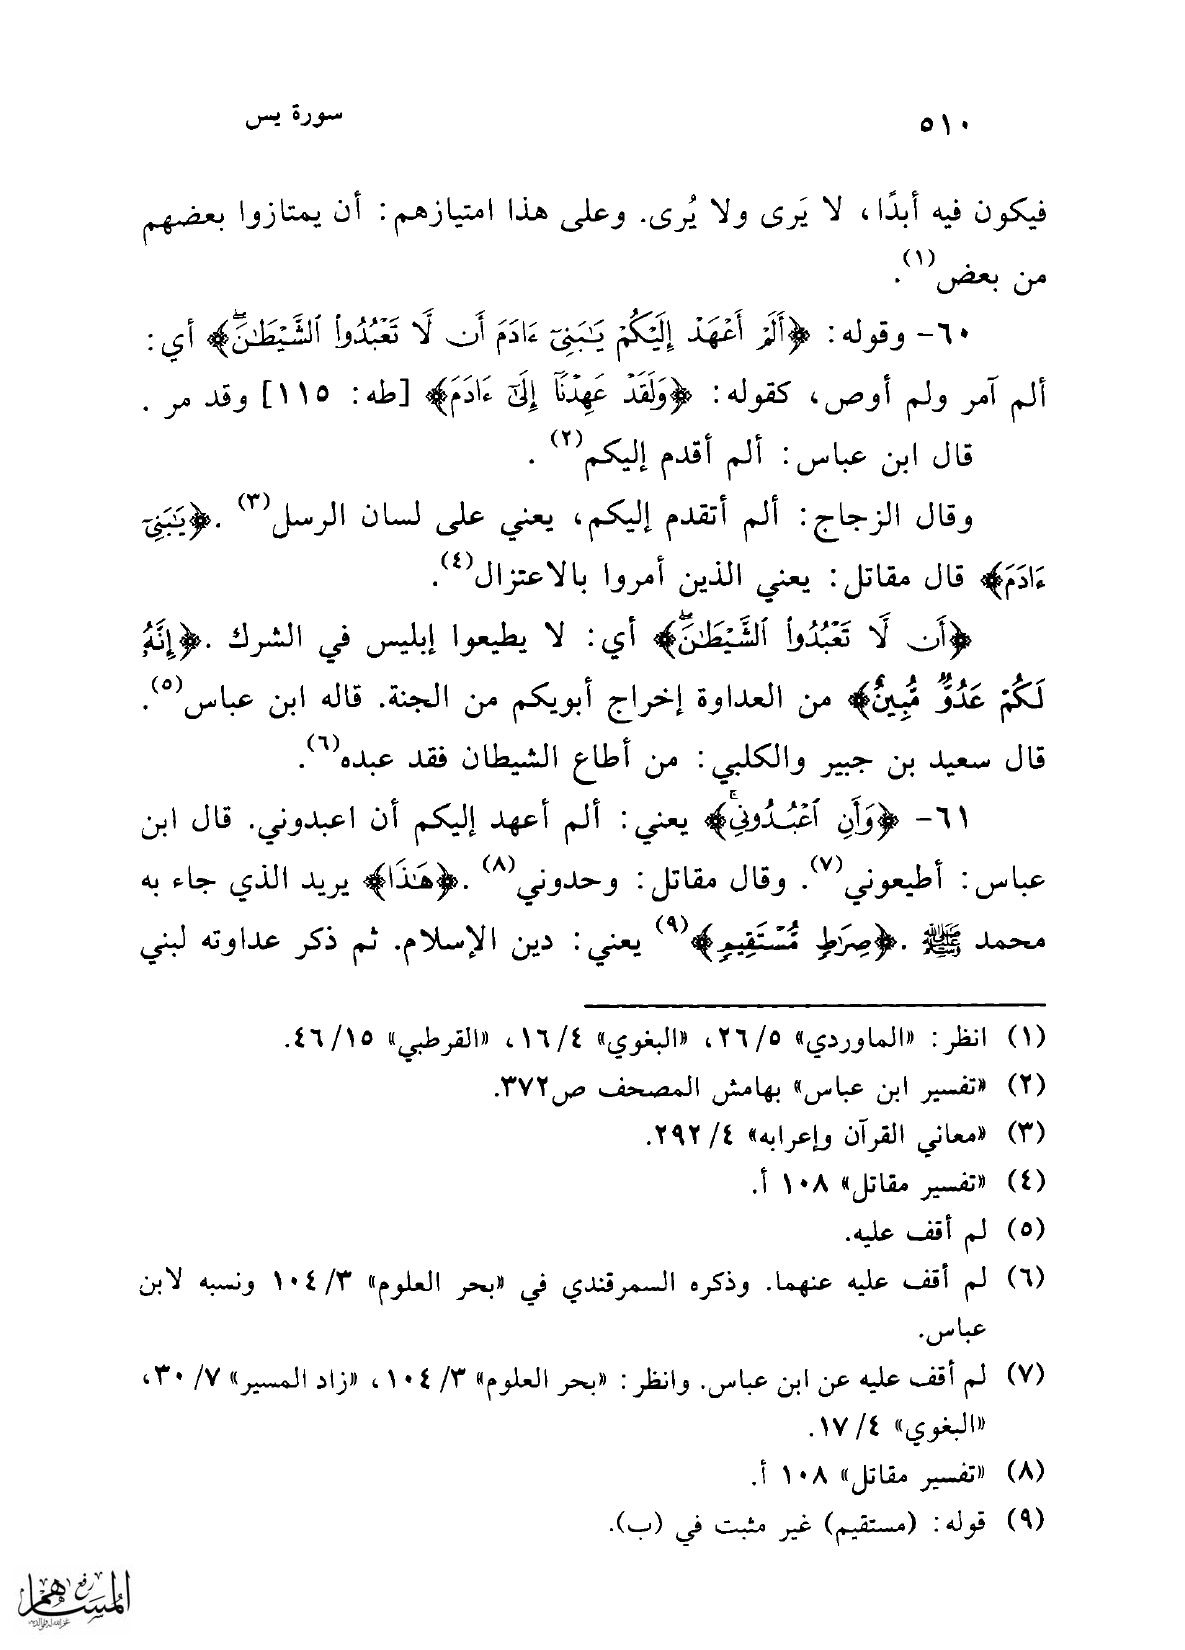 ٥١٠ سورة يس
فيكون فيه أبدًا، لا يَرى ولا يُرى. وعلى هذا امتيازهم: أن يمتازوا بعضهم
من بعض(١).
٦٠- وقوله: ﴿أَلَمْ أَعْهَدْ إِلَيْكُمْ يَٰبَنِىٓ ءَادَمَ أَن لَّا تَعْبُدُوا۟ ٱلشَّيْطَٰنَ ۖ﴾ أي:
ألم آمر ولم أوص، كقوله: ﴿وَلَقَدْ عَهِدْنَآ إِلَىٰٓ ءَادَمَ﴾ [طه: ١١٥] وقد مر .
قال ابن عباس: ألم أقدم إليكم(٢) .
وقال الزجاج: ألم أتقدم إليكم، يعني على لسان الرسل(٣) .﴿يَٰبَنِىٓ
ءَادَمَ﴾ قال مقاتل: يعني الذين أمروا بالاعتزال(٤).
﴿أَن لَّا تَعْبُدُوا۟ ٱلشَّيْطَٰنَ ۖ﴾ أي: لا يطيعوا إبليس في الشرك .﴿إِنَّهُۥ
لَكُمْ عَدُوٌّ مُّبِينٌ﴾ من العداوة إخراج أبويكم من الجنة. قاله ابن عباس(٥).
قال سعيد بن جبير والكلبي: من أطاع الشيطان فقد عبده(٦).
٦١- ﴿وَأَنِ ٱعْبُدُونِى ۚ﴾ يعني: ألم أعهد إليكم أن اعبدوني. قال ابن
عباس: أطيعوني(٧). وقال مقاتل: وحدوني(٨) .﴿هَٰذَا﴾ يريد الذي جاء به
محمد ﷺ .﴿صِرَٰطٌ مُّسْتَقِيمٌ﴾(٩) يعني: دين الإسلام. ثم ذكر عداوته لبني
(١) انظر: «الماوردي» ٥/ ٢٦، «البغوي» ٤/ ١٦، «القرطبي» ١٥/ ٤٦.
(٢) «تفسير ابن عباس» بهامش المصحف ص٣٧٢.
(٣) «معاني القرآن وإعرابه» ٤/ ٢٩٢.
(٤) «تفسير مقاتل» ١٠٨ أ.
(٥) لم أقف عليه.
(٦) لم أقف عليه عنهما. وذكره السمرقندي في «بحر العلوم» ٣/ ١٠٤ ونسبه لابن
عباس.
(٧) لم أقف عليه عن ابن عباس. وانظر: «بحر العلوم» ٣/ ١٠٤، «زاد المسير» ٧/ ٣٠،
«البغوي» ٤/ ١٧.
(٨) «تفسير مقاتل» ١٠٨ أ.
(٩) قوله: (مستقيم) غير مثبت في (ب).